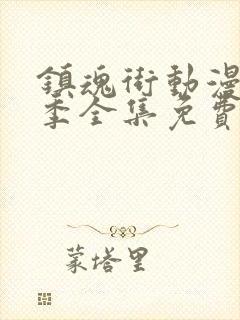 鎮魂街動漫
季全集免費
蒙塔里